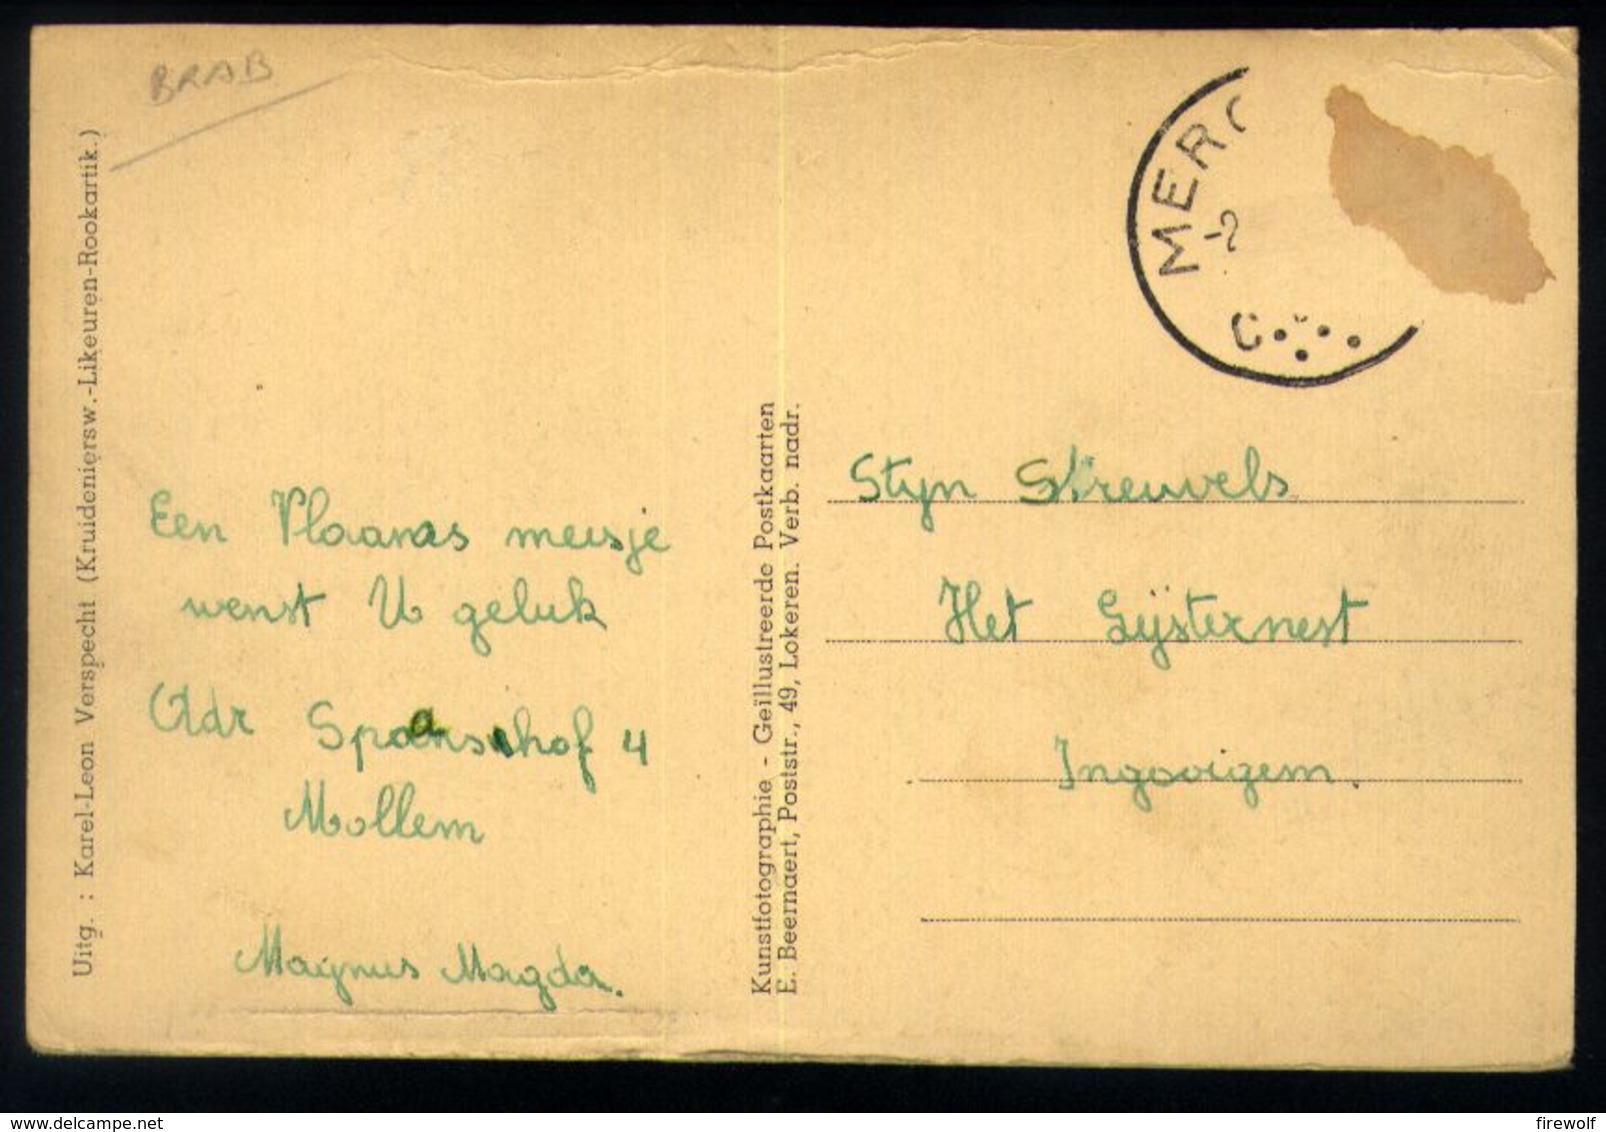 BRAB
Uitg. : Karel-Leon Verspecht (Kruideniersw.-Likeuren-Rookartik.)
Een Vlaams meisje
wenst U geluk
Adr Spaanschof 4
Mollem
Magnus Magda.
Kunstfotographie - Geïllustreerde Postkaarten
E. Beernaert, Poststr., 49, Lokeren. Verb. nadr.
MERC
-2
C
Styn Streuvels
Het Lijsternest
Ingooigem
firewolf